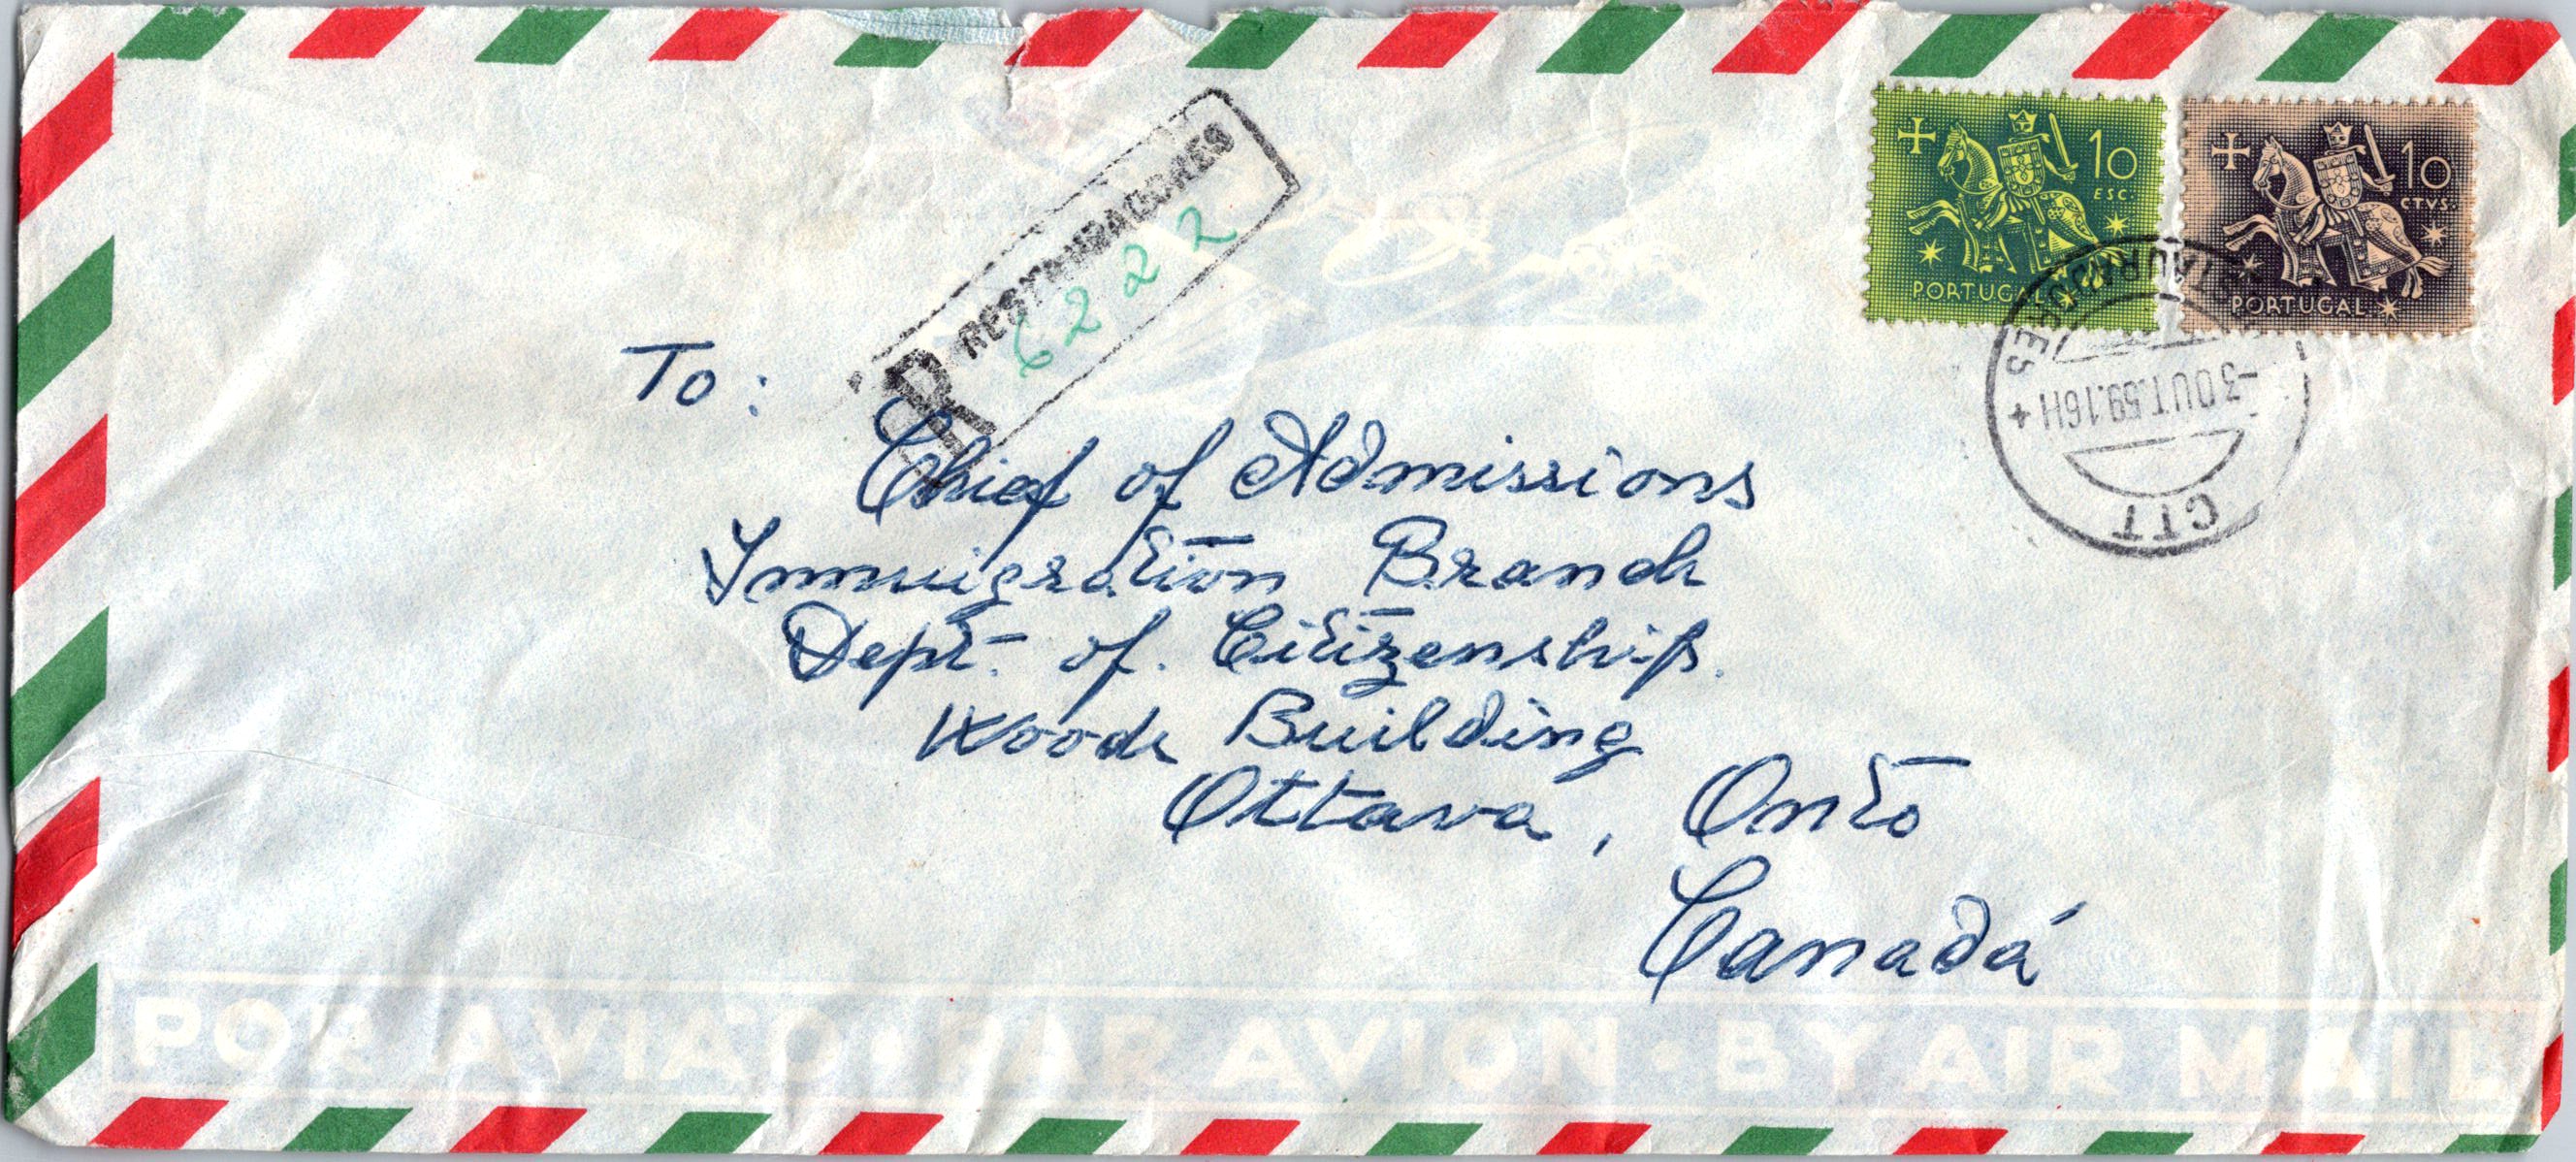 R RESTAURADORES
6222
10 ESC.
PORTUGAL
10 CTVS.
PORTUGAL
RESTAURADORES
-3 OUT.59.16H
CTT
To:
Chief of Admissions
Immigration Branch
Dept. of. Citizenship.
Woods Building
Ottava, Onto
Canadá
POR AVIÃO • PAR AVION • BY AIR MAIL